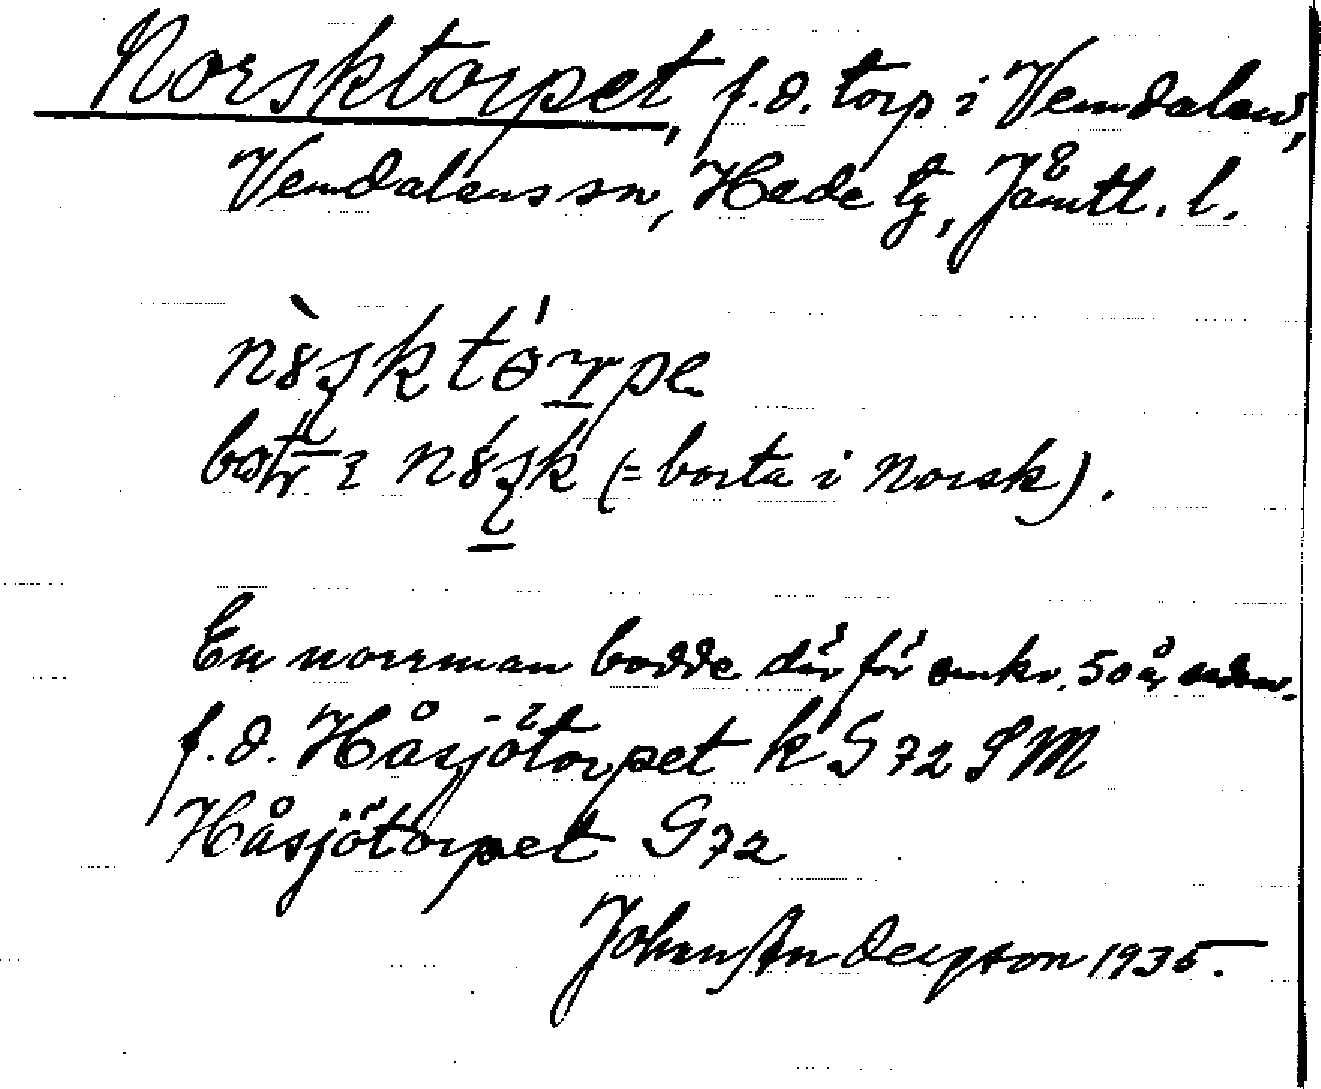 Norsktorpet, f.d. torp i Vemdalen,
Vemdalens sn, Hede tg, Jämtl. l.
(= borta i Norsk).
En norrman bodde där för omkr. 50 år sedan.
f.d. Håsjötorpet k S 72 SM
Håsjötorpet S 72
Johan Andersson 1935.